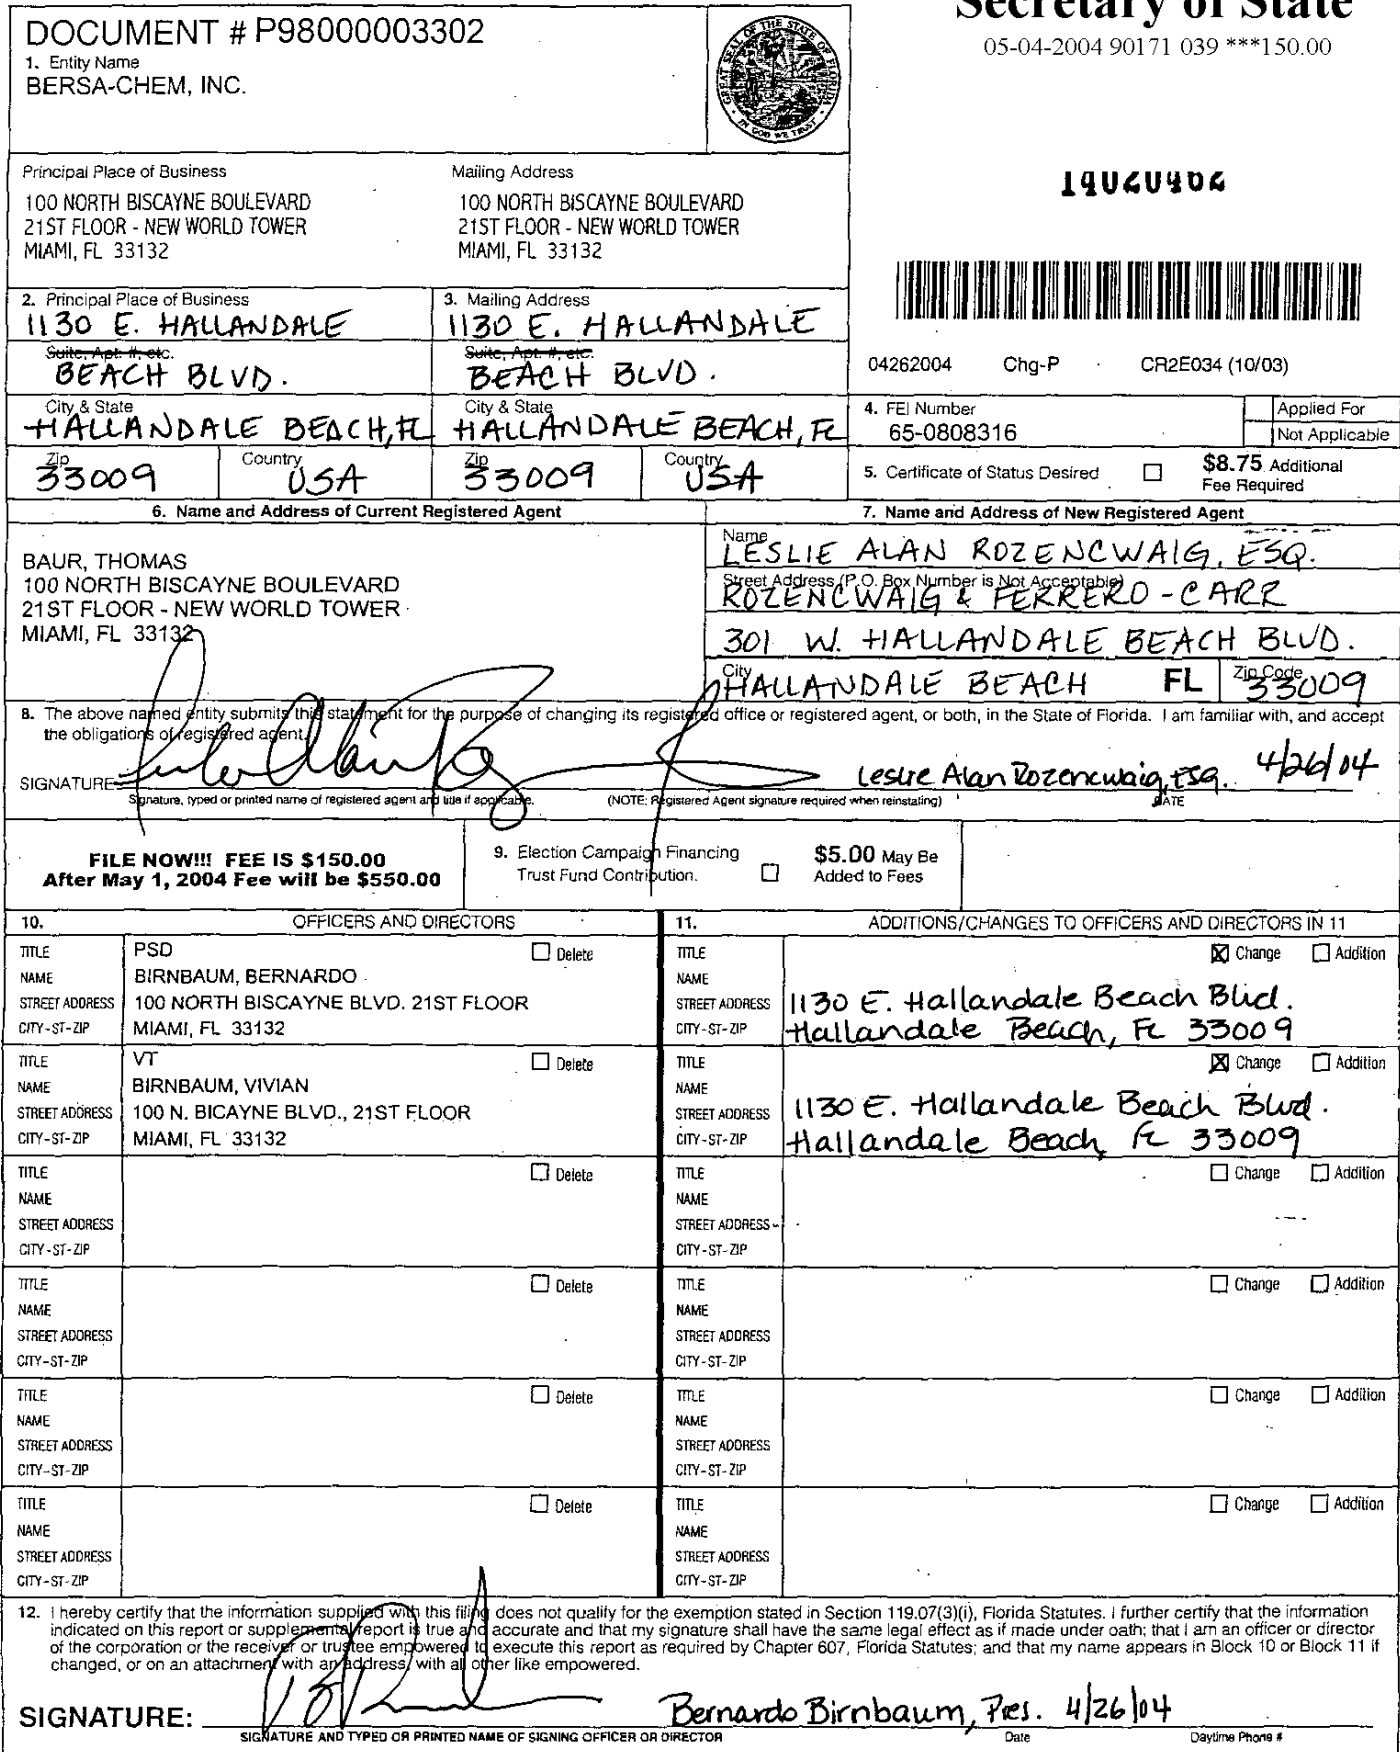 Secretary of State
05-04-2004 90171 039 ***150.00
DOCUMENT # P98000003302
1. Entity Name
BERSA-CHEM, INC.
GREAT SEAL OF THE STATE OF FLORIDA
IN GOD WE TRUST
Principal Place of Business
100 NORTH BISCAYNE BOULEVARD
21ST FLOOR - NEW WORLD TOWER
MIAMI, FL 33132
Mailing Address
100 NORTH BISCAYNE BOULEVARD
21ST FLOOR - NEW WORLD TOWER
MIAMI, FL 33132
2. Principal Place of Business
1130 E. HALLANDALE
Suite, Apt. #, etc.
BEACH BLVD.
City & State
HALLANDALE BEACH, FL
Zip
33009
Country
USA
3. Mailing Address
1130 E. HALLANDALE
Suite, Apt. #, etc.
BEACH BLVD.
City & State
HALLANDALE BEACH, FL
Zip
33009
Country
USA
04262004 Chg-P CR2E034 (10/03)
4. FEI Number
65-0808316
Applied For
Not Applicable
5. Certificate of Status Desired
$8.75 Additional
Fee Required
6. Name and Address of Current Registered Agent
BAUR, THOMAS
100 NORTH BISCAYNE BOULEVARD
21ST FLOOR - NEW WORLD TOWER
MIAMI, FL 33132
7. Name and Address of New Registered Agent
Name
LESLIE ALAN ROZENCWAIG, ESQ.
Street Address (P.O. Box Number is Not Acceptable)
ROZENCWAIG & FERRERO-CARR
301 W. HALLANDALE BEACH BLVD.
City
HALLANDALE BEACH FL Zip Code
33009
8. The above named entity submits this statement for the purpose of changing its registered office or registered agent, or both, in the State of Florida. I am familiar with, and accept
the obligations of registered agent.
SIGNATURE Leslie Alan Rozencwaig, Esq. 4/26/04
Signature, typed or printed name of registered agent and title if applicable. (NOTE: Registered Agent signature required when reinstating) DATE
FILE NOW!!! FEE IS $150.00
After May 1, 2004 Fee will be $550.00
9. Election Campaign Financing
Trust Fund Contribution.
$5.00 May Be
Added to Fees
10. OFFICERS AND DIRECTORS
TITLE PSD Delete
NAME BIRNBAUM, BERNARDO
STREET ADDRESS 100 NORTH BISCAYNE BLVD. 21ST FLOOR
CITY-ST-ZIP MIAMI, FL 33132
TITLE VT Delete
NAME BIRNBAUM, VIVIAN
STREET ADDRESS 100 N. BICAYNE BLVD., 21ST FLOOR
CITY-ST-ZIP MIAMI, FL 33132
TITLE Delete
NAME
STREET ADDRESS
CITY-ST-ZIP
TITLE Delete
NAME
STREET ADDRESS
CITY-ST-ZIP
TITLE Delete
NAME
STREET ADDRESS
CITY-ST-ZIP
TITLE Delete
NAME
STREET ADDRESS
CITY-ST-ZIP
11. ADDITIONS/CHANGES TO OFFICERS AND DIRECTORS IN 11
TITLE Change Addition
NAME
STREET ADDRESS 1130 E. Hallandale Beach Blvd.
CITY-ST-ZIP Hallandale Beach, FL 33009
TITLE Change Addition
NAME
STREET ADDRESS 1130 E. Hallandale Beach Blvd.
CITY-ST-ZIP Hallandale Beach, FL 33009
TITLE Change Addition
NAME
STREET ADDRESS
CITY-ST-ZIP
TITLE Change Addition
NAME
STREET ADDRESS
CITY-ST-ZIP
TITLE Change Addition
NAME
STREET ADDRESS
CITY-ST-ZIP
TITLE Change Addition
NAME
STREET ADDRESS
CITY-ST-ZIP
12. I hereby certify that the information supplied with this filing does not qualify for the exemption stated in Section 119.07(3)(i), Florida Statutes. I further certify that the information
indicated on this report or supplemental report is true and accurate and that my signature shall have the same legal effect as if made under oath; that I am an officer or director
of the corporation or the receiver or trustee empowered to execute this report as required by Chapter 607, Florida Statutes; and that my name appears in Block 10 or Block 11 if
changed, or on an attachment with an address, with all other like empowered.
SIGNATURE: Bernardo Birnbaum, Pres. 4/26/04
SIGNATURE AND TYPED OR PRINTED NAME OF SIGNING OFFICER OR DIRECTOR Date Daytime Phone #